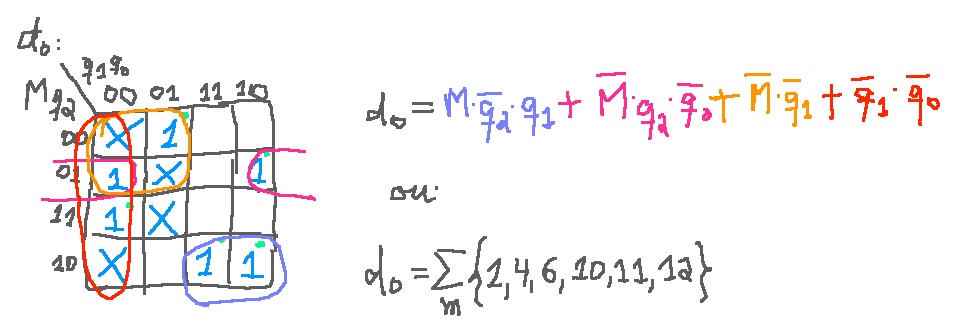 d₀:
q₁q₀
Mq₂ 00 01 11 10
00 X 1
01 1 X 1
11 1 X
10 X 1 1
d₀ = M·q̅₂·q₁ + M̅·q₂·q̅₀ + M̅·q̅₁ + q̅₁·q̅₀
ou:
d₀ = ∑m{1,4,6,10,11,12}